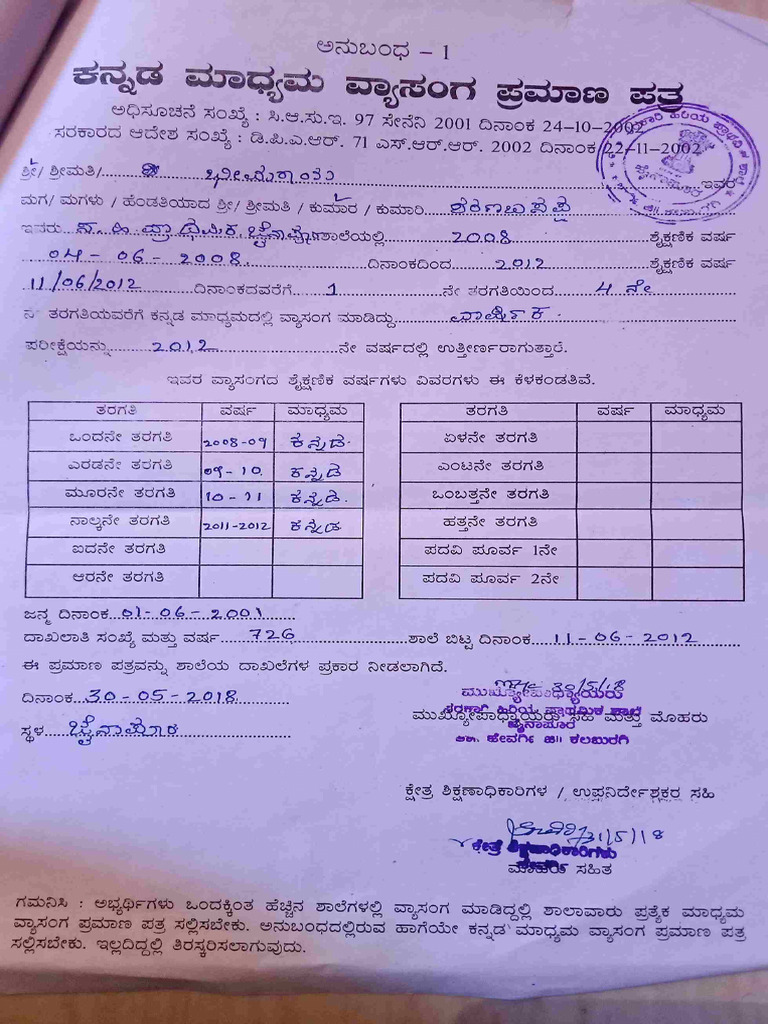 ಅನುಬಂಧ – 1
ಕನ್ನಡ ಮಾಧ್ಯಮ ವ್ಯಾಸಂಗ ಪ್ರಮಾಣ ಪತ್ರ
ಅಧಿಸೂಚನೆ ಸಂಖ್ಯೆ : ಸಿ.ಆ.ಸು.ಇ. 97 ಸೇನೆನಿ 2001 ದಿನಾಂಕ 24–10–2002
ಸರಕಾರದ ಆದೇಶ ಸಂಖ್ಯೆ : ಡಿ.ಪಿ.ಎ.ಆರ್. 71 ಎಸ್.ಆರ್.ಆರ್. 2002 ದಿನಾಂಕ 22–11–2002
ಶ್ರೀ/ ಶ್ರೀಮತಿ/ ಇವರ
ಮಗ/ ಮಗಳು / ಹೆಂಡತಿಯಾದ ಶ್ರೀ/ ಶ್ರೀಮತಿ / ಕುಮಾರ / ಕುಮಾರಿ ಶರಣಬಸಪ್ಪ
ಇವರು ಸ.ಹಿ.ಪ್ರಾಥಮಿಕ ಶಾಲೆಯಲ್ಲಿ 2008 ಶೈಕ್ಷಣಿಕ ವರ್ಷ
04-06-2008 ದಿನಾಂಕದಿಂದ 2012 ಶೈಕ್ಷಣಿಕ ವರ್ಷ
11/06/2012 ದಿನಾಂಕದವರೆಗೆ 1 ನೇ ತರಗತಿಯಿಂದ 4 ನೇ
ನೇ ತರಗತಿಯವರೆಗೆ ಕನ್ನಡ ಮಾಧ್ಯಮದಲ್ಲಿ ವ್ಯಾಸಂಗ ಮಾಡಿದ್ದು ವಾರ್ಷಿಕ
ಪರೀಕ್ಷೆಯನ್ನು 2012 ನೇ ವರ್ಷದಲ್ಲಿ ಉತ್ತೀರ್ಣರಾಗುತ್ತಾರೆ.
ಇವರ ವ್ಯಾಸಂಗದ ಶೈಕ್ಷಣಿಕ ವರ್ಷಗಳು ವಿವರಗಳು ಈ ಕೆಳಕಂಡತಿವೆ.
ತರಗತಿ ವರ್ಷ ಮಾಧ್ಯಮ
ಒಂದನೇ ತರಗತಿ 2008-09 ಕನ್ನಡ
ಎರಡನೇ ತರಗತಿ 09-10 ಕನ್ನಡ
ಮೂರನೇ ತರಗತಿ 10-11 ಕನ್ನಡ
ನಾಲ್ಕನೇ ತರಗತಿ 2011-2012 ಕನ್ನಡ
ಐದನೇ ತರಗತಿ
ಆರನೇ ತರಗತಿ
ತರಗತಿ ವರ್ಷ ಮಾಧ್ಯಮ
ಏಳನೇ ತರಗತಿ
ಎಂಟನೇ ತರಗತಿ
ಒಂಬತ್ತನೇ ತರಗತಿ
ಹತ್ತನೇ ತರಗತಿ
ಪದವಿ ಪೂರ್ವ 1ನೇ
ಪದವಿ ಪೂರ್ವ 2ನೇ
ಜನ್ಮ ದಿನಾಂಕ 01-06-2001
ದಾಖಲಾತಿ ಸಂಖ್ಯೆ ಮತ್ತು ವರ್ಷ 726 ಶಾಲೆ ಬಿಟ್ಟ ದಿನಾಂಕ 11-06-2012
ಈ ಪ್ರಮಾಣ ಪತ್ರವನ್ನು ಶಾಲೆಯ ದಾಖಲೆಗಳ ಪ್ರಕಾರ ನೀಡಲಾಗಿದೆ.
30/5/18
ದಿನಾಂಕ 30-05-2018
ಮುಖ್ಯೋಪಾಧ್ಯಾಯರು
ಸರಕಾರಿ ಹಿರಿಯ ಪ್ರಾಥಮಿಕ ಶಾಲೆ
ಮುಖ್ಯೋಪಾಧ್ಯಾಯರು ಸಹಿ ಮತ್ತು ಮೊಹರು
ಜೈನಾಪೂರ
ಸ್ಥಳ ಜೈನಾಪೂರ
ತಾ. ಜೇವರ್ಗಿ ಜಿ|| ಕಲಬುರಗಿ
ಕ್ಷೇತ್ರ ಶಿಕ್ಷಣಾಧಿಕಾರಿಗಳ / ಉಪನಿರ್ದೇಶಕರ ಸಹಿ
31/5/18
ಕ್ಷೇತ್ರ ಶಿಕ್ಷಣಾಧಿಕಾರಿಗಳು
ಜೇವರ್ಗಿ
ಮೊಹರು ಸಹಿತ
ಗಮನಿಸಿ : ಅಭ್ಯರ್ಥಿಗಳು ಒಂದಕ್ಕಿಂತ ಹೆಚ್ಚಿನ ಶಾಲೆಗಳಲ್ಲಿ ವ್ಯಾಸಂಗ ಮಾಡಿದ್ದಲ್ಲಿ ಶಾಲಾವಾರು ಪ್ರತ್ಯೇಕ ಮಾಧ್ಯಮ
ವ್ಯಾಸಂಗ ಪ್ರಮಾಣ ಪತ್ರ ಸಲ್ಲಿಸಬೇಕು. ಅನುಬಂಧದಲ್ಲಿರುವ ಹಾಗೆಯೇ ಕನ್ನಡ ಮಾಧ್ಯಮ ವ್ಯಾಸಂಗ ಪ್ರಮಾಣ ಪತ್ರ
ಸಲ್ಲಿಸಬೇಕು. ಇಲ್ಲದಿದ್ದಲ್ಲಿ ತಿರಸ್ಕರಿಸಲಾಗುವುದು.